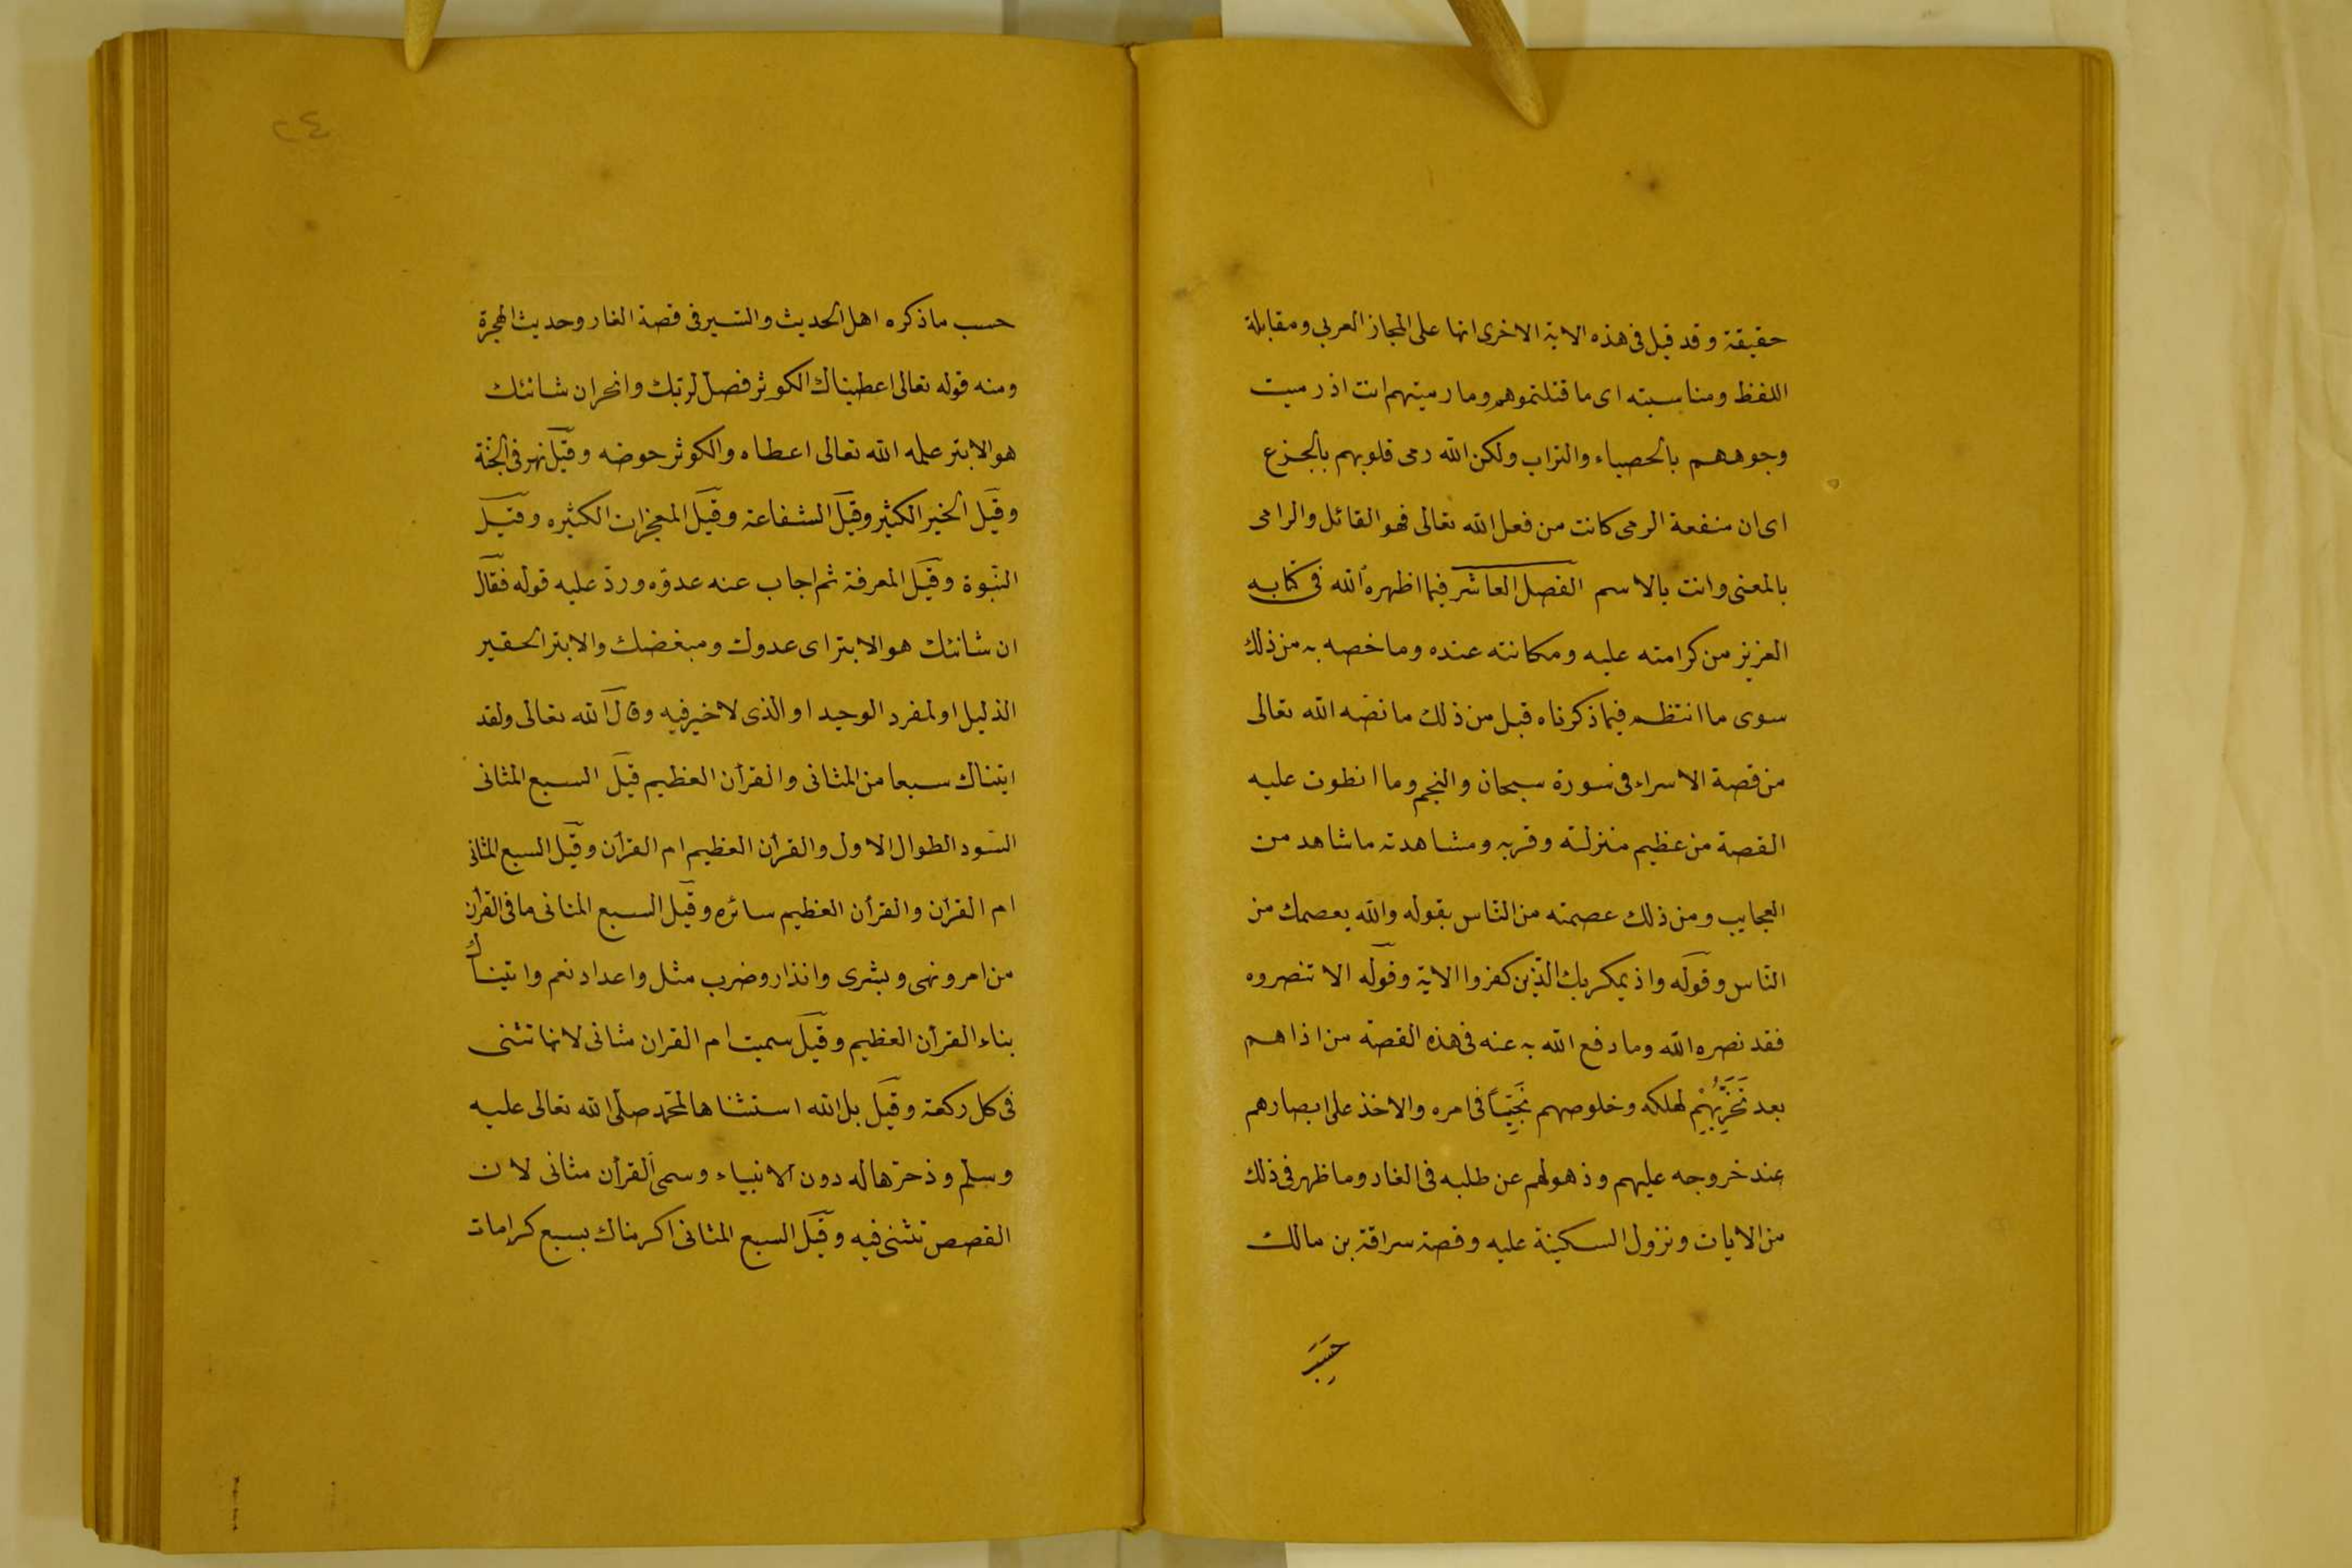 حقيقة وقد قيل فى هذه الاية الاخرى انها على المجاز العربى ومقابلة
اللفظ ومناسبته اى ما قتلتموهم وما رميتهم انت اذ رميت
وجوههم بالحصباء والتراب ولكن الله رمى قلوبهم بالجزع
اى ان منفعة الرمى كانت من فعل الله تعالى فهو القاتل والرامى
بالمعنى وانت بالاسم الفصل العاشر فيما اظهره الله فى كتابه
العزيز من كرامته عليه ومكانته عنده وما خصه به من ذلك
سوى ما انتظم فيما ذكرناه قبل من ذلك ما نصه الله تعالى
من قصة الاسراء فى سورة سبحان والنجم وما انطوت عليه
القصة من عظيم منزلته وقربه ومشاهدته ما شاهد من
العجايب ومن ذلك عصمته من النّاس بقوله والله يعصمك من
النّاس وقوله واذ يمكر بك الّذين كفروا الاية وقوله الا تنصروه
فقد نصره الله وما دفع الله به عنه فى هذه القصّة من اذاهم
بعد تَحَزُّبِهِمْ لهلكه وخلوصهم نَجِيّاً فى امره والاخذ على ابصارهم
عند خروجه عليهم وذهولهم عن طلبه فى الغار وما ظهر فى ذلك
من الايات ونزول السكينة عليه وقصة سراقة بن مالك
حَسَبَ
٢٤
حسب ما ذكره اهل الحديث والسّير فى قصة الغار وحديث الهجرة
ومنه قوله تعالى اعطيناك الكوثر فصل لربّك وانحر ان شانئك
هو الابتر علمه الله تعالى اعطاه والكوثر حوضه وقيل نهر فى الجنّة
وقيل الخير الكثير وقيل الشفاعة وقيل المعجزات الكثيره وقيل
النّبوة وقيل المعرفة ثم اجاب عنه عدوّه وردّ عليه قوله فقال
ان شانئك هو الابتر اى عدوك ومبغضك والابتر الحقير
الذليل او لمفرد الوحيد او الذى لا خير فيه وقال الله تعالى ولقد
اتيناك سبعا من المثانى والقرأن العظيم قيل السبع المثانى
السّور الطوال الاول والقرأن العظيم ام القرأن وقيل السبع المثانى
ام القران والقرأن العظيم سائره وقيل السبع المثانى ما فى القرأن
من امر ونهى وبشرى وانذار وضرب مثل واعداد نعم واتيناك
بناء القرأن العظيم وقيل سميت ام القران مثانى لانها تثنى
فى كل ركعة وقيل بل الله استثناها لمحمّد صلّى الله تعالى عليه
وسلم وذخرها له دون الانبياء وسمى القرأن مثانى لان
القصص تثنى فيه وقيل السبع المثانى اكرمناك بسبع كرامات